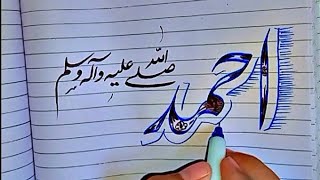 احمد
صلی اللہ علیہ وآلہ وسلم